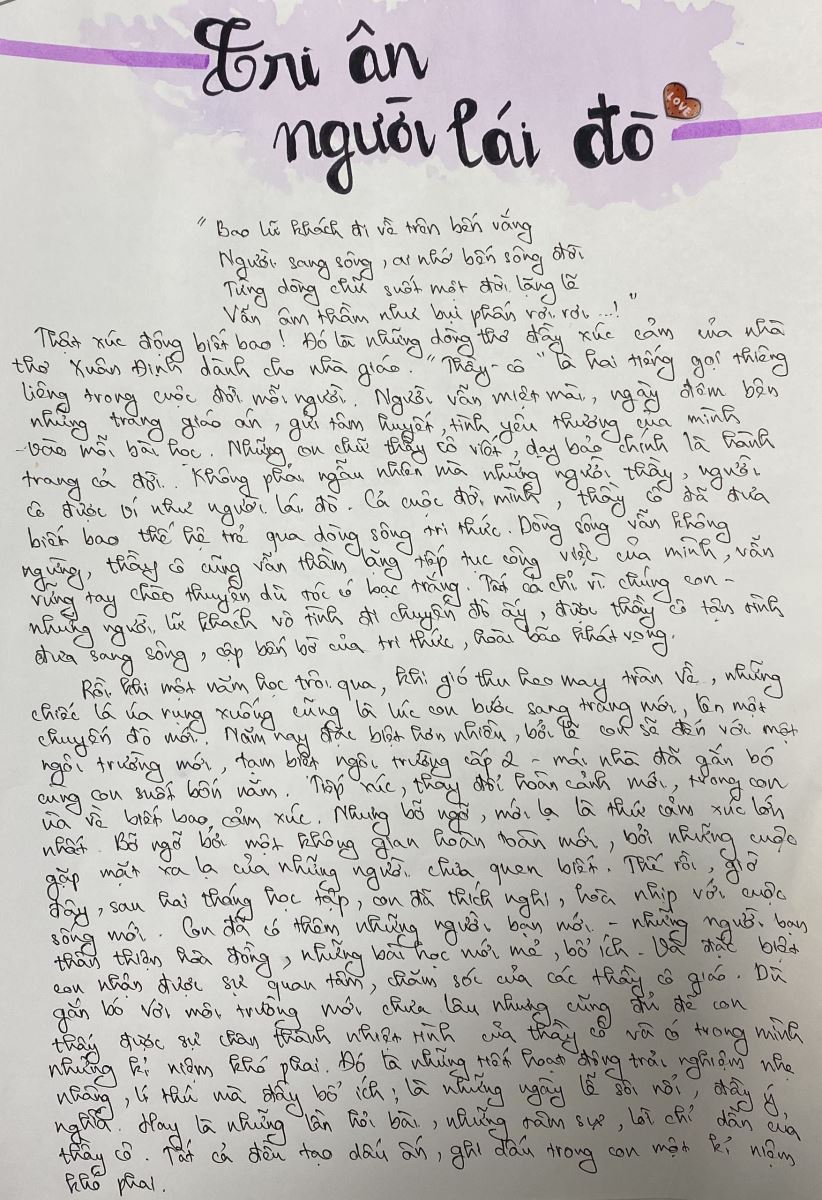 Tri ân
người lái đò
LOVE
" Bao lữ khách đi về trên bến vắng
Người sang sông, ai nhớ bến sông đời
Từng dòng chữ suốt một đời lặng lẽ
Vẫn âm thầm như bụi phấn rơi rơi...! "
Thật xúc động biết bao! Đó là những dòng thơ đầy xúc cảm của nhà
thơ Xuân Định dành cho nhà giáo. "Thầy-cô" là hai tiếng gọi thiêng
liêng trong cuộc đời mỗi người. Người vẫn miệt mài, ngày đêm bên
những trang giáo án, gửi tâm huyết, tình yêu thương của mình
vào mỗi bài học. Những con chữ thầy cô viết, dạy bảo chính là hành
trang cả đời. Không phải ngẫu nhiên mà những người thầy, người
cô được ví như người lái đò. Cả cuộc đời mình, thầy cô đã đưa
biết bao thế hệ trẻ qua dòng sông tri thức. Dòng sông vẫn không
ngừng, thầy cô cũng vẫn thầm lặng tiếp tục công việc của mình, vẫn
vững tay chèo thuyền dù tóc có bạc trắng. Tất cả chỉ vì chúng con -
những người lữ khách vô tình đi chuyến đò ấy, được thầy cô tận tình
đưa sang sông, cập bến bờ của tri thức, hoài bão khát vọng.
Rồi khi một năm học trôi qua, khi gió thu heo may tràn về, những
chiếc lá úa rụng xuống cũng là lúc con bước sang trang mới, lên một
chuyến đò mới. Năm nay đặc biệt hơn nhiều, bởi lẽ con sẽ đến với một
ngôi trường mới, tạm biệt ngôi trường cấp 2 - mái nhà đã gắn bó
cùng con suốt bốn năm. Tiếp xúc, thay đổi hoàn cảnh mới, trong con
ùa về biết bao cảm xúc. Nhưng bỡ ngỡ, mới lạ là thứ cảm xúc lớn
nhất. Bỡ ngỡ bởi một không gian hoàn toàn mới, bởi những cuộc
gặp mặt xa lạ của những người chưa quen biết. Thế rồi, giờ
đây, sau hai tháng học tập, con đã thích nghi, hòa nhịp với cuộc
sống mới. Con đã có thêm những người bạn mới - những người bạn
thân thiện hòa đồng, những bài học mới mẻ, bổ ích. Và đặc biệt
con nhận được sự quan tâm, chăm sóc của các thầy cô giáo. Dù
gắn bó với môi trường mới chưa lâu nhưng cũng đủ để con
thấy được sự chân thành nhiệt tình của thầy cô và có trong mình
những kỉ niệm khó phai. Đó là những tiết hoạt động trải nghiệm nhẹ
nhàng, lí thú mà đầy bổ ích, là những ngày lễ sôi nổi, đầy ý
nghĩa. Hay là những lần hỏi bài, những tâm sự, lời chỉ dẫn của
thầy cô. Tất cả đều tạo dấu ấn, ghi dấu trong con một kí niệm
khó phai.